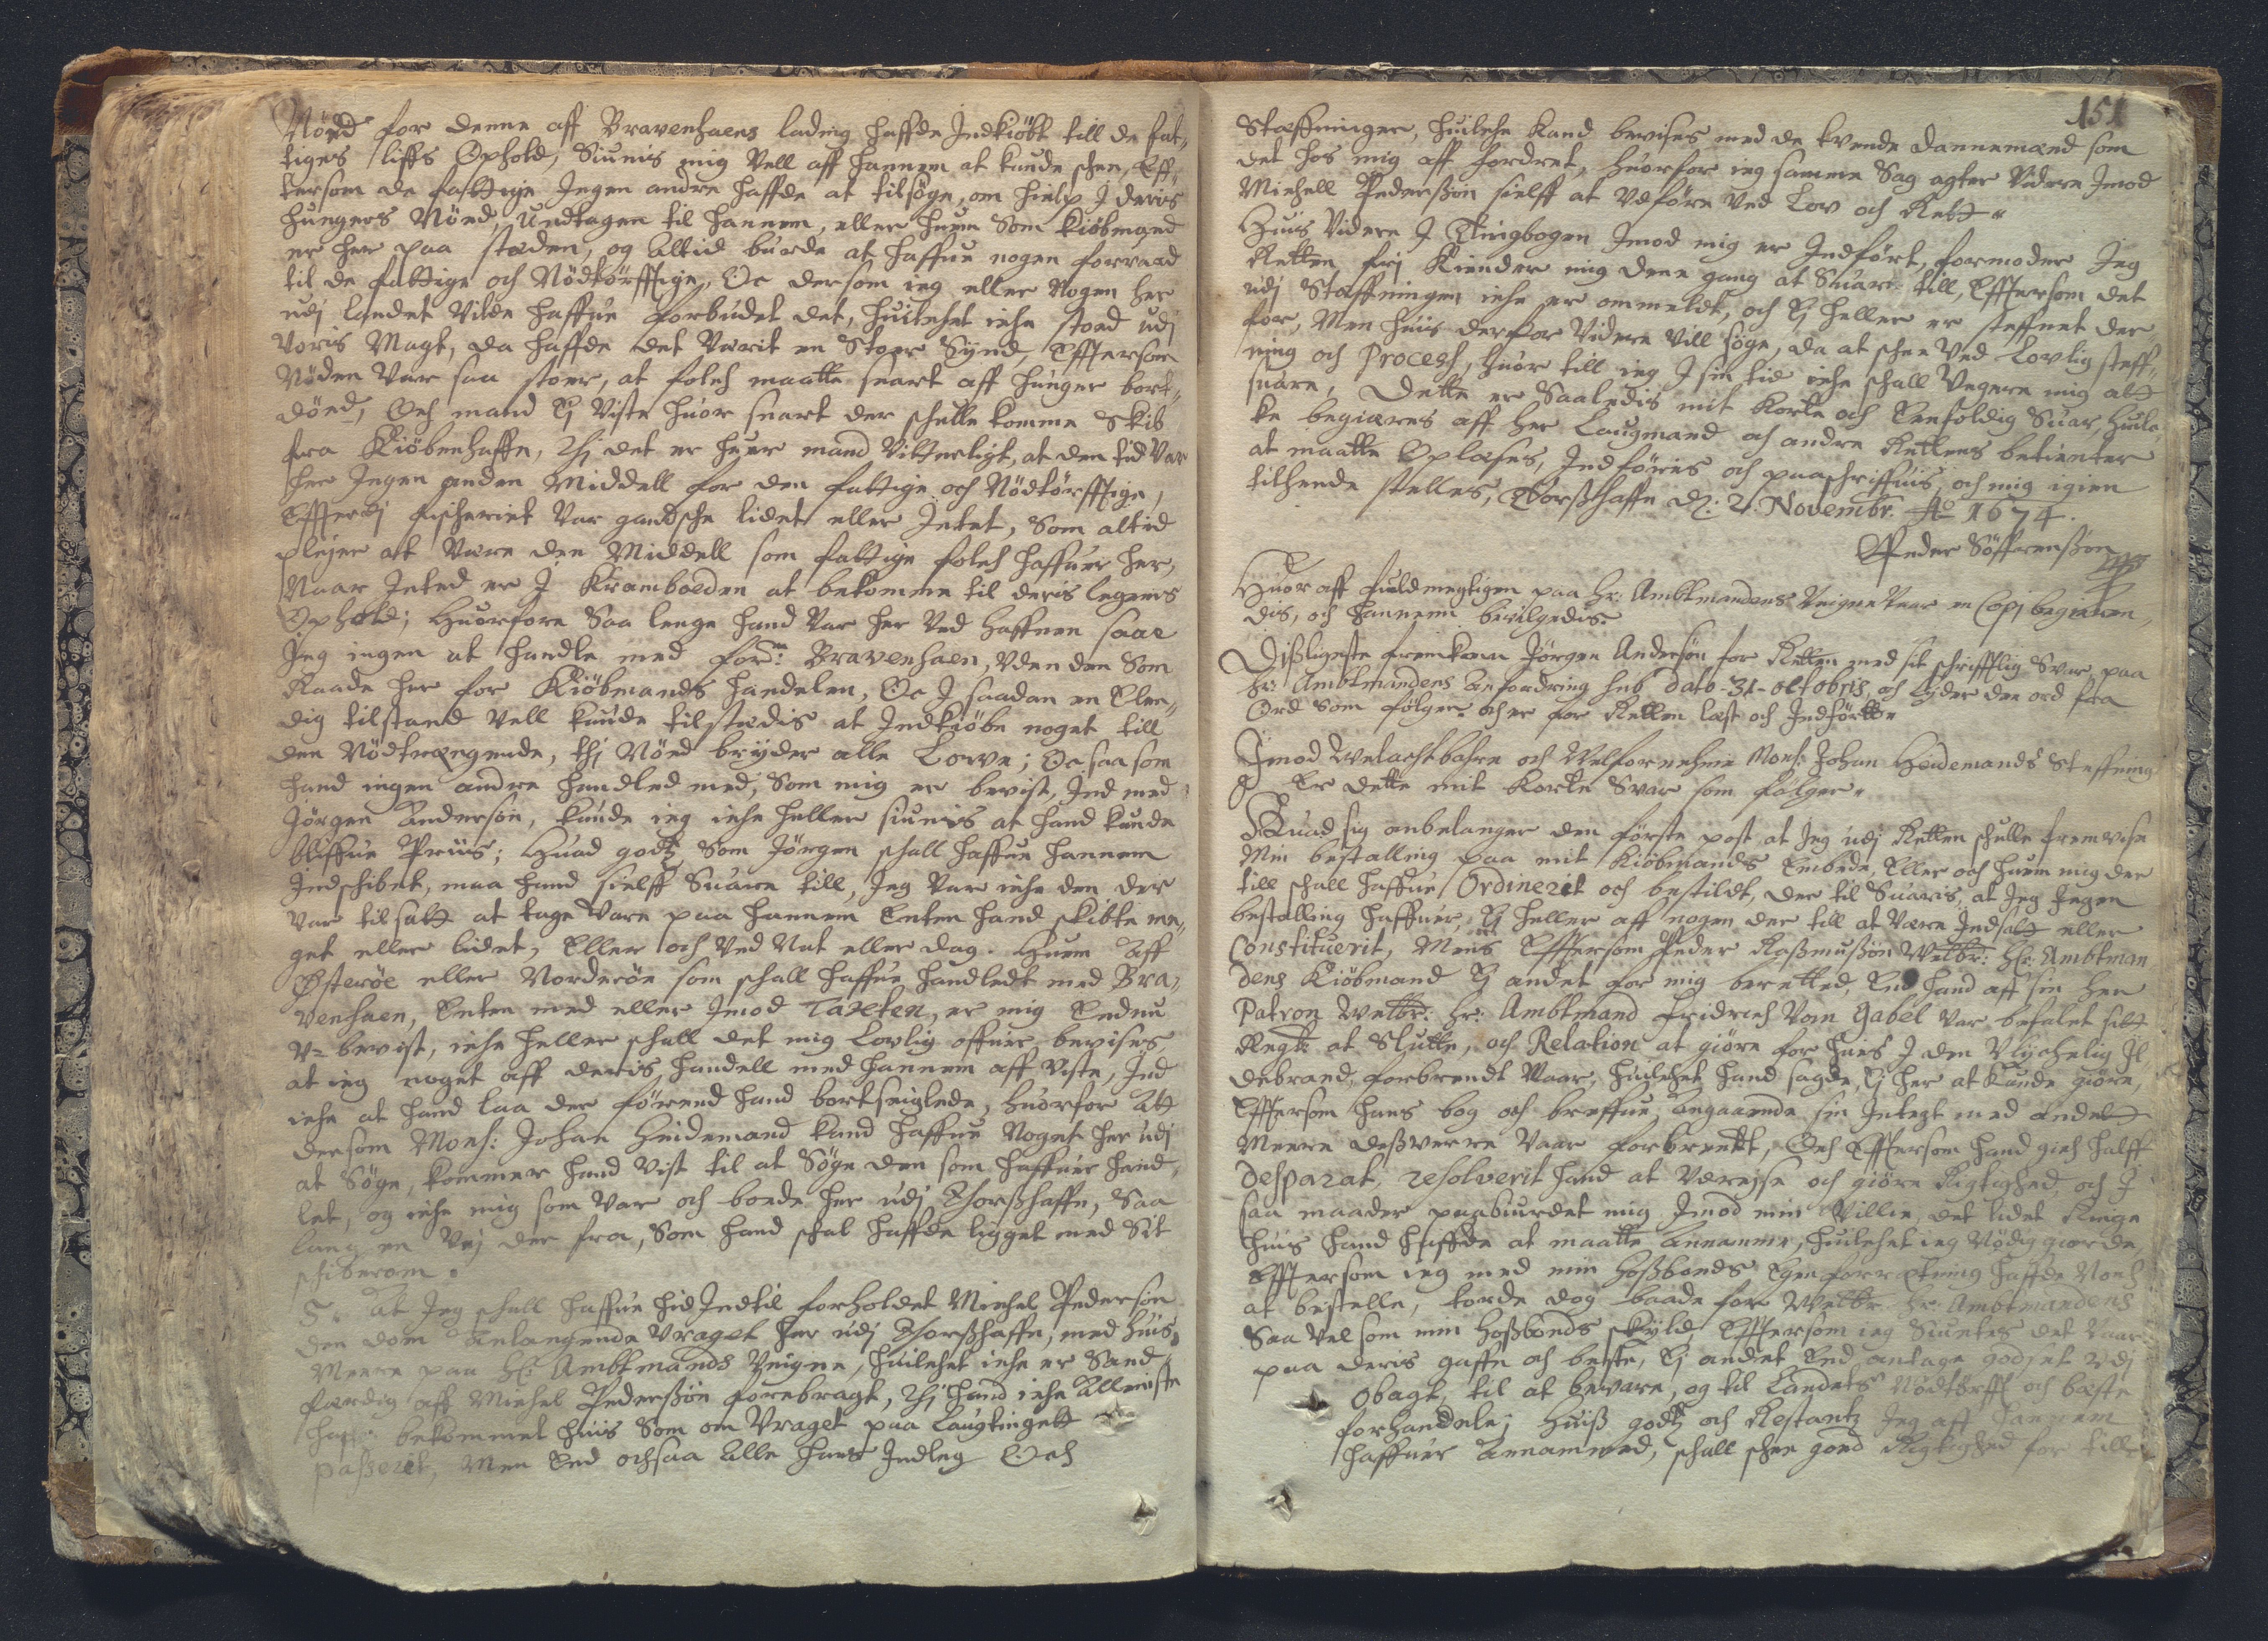 Nöed for denne aff Bravenhaens lading haffde Indkiöbt till de fat¬
tiges liffs Ophold, Siunis mig Vell aff hannem at kunde schee, Eff¬
tersom de fattige Ingen andre haffde at tilsöge, om hielp I deris
hungers Nöed, Undtagen til hannem, eller huem Som kiöbmand
er her paa steden, og altid burde at haffue nogen forraad
til de fattige och Nödtörfftige, Oc dersom ieg eller Nogen her
udj landet Vilde haffue forbudet det, huilchet iche stoed udj
Voris Magt, da haffde det Værit en Stoer Synd, Efftersom
Nöden Var saa stoer, at folch maatte snart aff hunger bort¬
döed, Och mand Ej Viste huor snart der schulle komme Skib
fra Kiöbenhaffn, Thj det er huer mand Vitterligt, at den tid Var
her Ingen anden Middell for den fattige och Nödtörfftige,
Efftterdj fischeriet Var gandsche lidet eller Intet, Som altid
plejer att Være den Middell som fattige folch haffuer her,
Naar Inted er I Kramboeden at bekomme til deris legems
Ophold; Huorfore Saa lenge hand Var her Ved haffnen saae
Jeg ingen at handle med forne: Bravenhaen, Uden den Som
Raade her for Kiöbmands handelen, Oc I saadan en Elen¬
dig tilstand Vell kunde tilstædis at Indkiöbe noget till
den Nödtrængende, thj Nöed bryder alle Love; Oc saa som
hand ingen andre handled med, Som mig er bevist, Ind med
Jörgen Andersön, kunde ieg iche heller siunis at hand kunde
bliffue Priis; Huad godtz Som Jörgen schall haffue hannem
Indschibet, maa hand sielff Suare till, Jeg Var iche den der
Var tilsatt at tage Vare paa hannem Enten hand skibte me¬
get eller lidet, Eller och Ved Nat eller dag. Huem Aff
Österöe eller Norderöe som schall haffue handledt med Bra¬
venhaen, Enten med eller Imod Taxten, er mig Endnu
U=bevist, iche heller schall det mig Lovlig offuer bevises
at ieg noget aff deris handell med hannem aff Viste, Ind
iche at hand laa der förend hand bortseiglede, huorfor Att
dersom Mons: Johan Heidemand kand haffue Noget her udj
at Söge, kommer hand Vist til at Söge den som haffuer hand¬
let, og iche mig som Var och boede her udj Thorßhaffn, Saa
lang en Vej der fra, Som hand schal haffde ligget med Sit
schiberom.
5. at Jeg schall haffue hid Indtil forholdet Michel Pedersön
den dom anlangende Vraget her udj Thorßhaffn, med huis
Meere paa Hr: Ambtmands Veigne, huilchet iche er Sand¬
færdig aff Michel Pederßön forebragt, Thj hand iche Allmiste
haffr: bekommet huis Som om Vraget paa Laugtingett
passeret, Men End ochsaa Alle hans Indleg Och
151
Stæffninger, huilche kand bevises med de tvende dannemænd som
det hos mig aff fordret, huorfor ieg samme Sag agter Videre Imod
Michell Pederßön sielff at Udföre Ved Lov och Rett.
Huis Videre I Tingbogen Imod mig er Indfört, formoder Jeg
Retten frj Kiender mig denne gang at Suare till, Efftersom det
udj Stæffningen iche er ommeldt, och Ej heller er steffnet der
for, Men huis derfor Videre Vill söge, da at schee Ved Lovlig steff¬
ning och Process, huor till ieg I sin tid iche schall Vegere mig att
suare, Dette er Saaledis mit Korte och Eenfoldig Suar, huil¬
ke begiæres aff Her Laugmand och andre Rettens betienter
at maatte Oplæses, Indföris och paaschriffuis, och mig igien
tilhende stelles, Thorßhaffn dn: 2. Novembr: Ao 1674.
Peder Söffrenßön
Huor aff fuldmegtigen paa Hr: Ambtmandens Veigne Vaar en Copj begieren¬
dis, och hannem bevilgedis.
Dißligeste fremkom Jörgen Andersön for Retten med sit schrifftlig Svar paa
Hr: Ambtmandens Anfordring sub dato 31 octobris, och lyder den ord fra
Ord som fölger. och er for Retten læst och Indförtt.
Imod Welachtbahre och Welfornehme Mons: Johan Heidemands Steffning
Er dette mit Korte Svar som fölger.
Huad sig anbelanger den förste post at Jeg udj Retten schulle fremvise
Min bestalling paa mit Kiöbmands Embede, Eller och huem mig der
till schall haffue Ordinerit och bestildt, der til Suaris, at Jeg Ingen
bestalling haffuer, Ej heller aff nogen der till at Være Indsatt eller
Constituerit, Mens Efftersom Peder Raßmußön Welbr: Hr: Ambtman
dens Kiöbmand Ej andet for mig beretted, End hand aff sin Her
Patron Welbr: Hr: Ambtmand Fridrich Von Gabel Var befalet sitt
Regt: at Slutte, och Relation at giöre for huis I den Ulychelig Il¬
debrand, forbrendt Vaar, huilchet hand sagde, Ej her at kunde giöre,
Efftersom hans bog och breffue, Angaaende sin Integt med Andett
Meere deßverre Vaar forbrendt, Och Efftersom hand gich halff
desparat, resolverit hand at Veregse och giöre Rigtighed, och I
saa maader paaburdet mig Imod min Villie, det lidet Ringe
huis hand haffde at maatte Annamme, huilchet ieg Nödig giorde,
Efftersom ieg med min hoßbonds Egen forretning haffde Noch
at bestelle, torde dog baade for Welbr: Hr: Ambtmandens
Saa Vel som min hoßbonds skyld, Efftersom ieg Siuntes det Vaar
paa deris gaffn och beste, Ej andet End antage godset Udj
Obagt, til at bevare, og til Landets Nödtörfft och beste
forhandele; Huiß godtz och Restantz Jeg aff hannem
haffuer Annammed, schall schee goed Rigtighed for tille